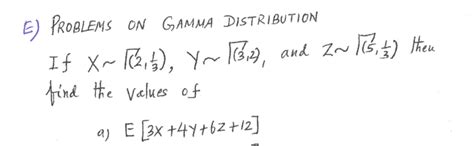 E) PROBLEMS ON GAMMA DISTRIBUTION
If X ~ Γ(2, 1/3), Y ~ Γ(3,2), and Z ~ Γ(5, 1/3) then
find the values of
a) E [3X + 4Y + 6Z + 12]